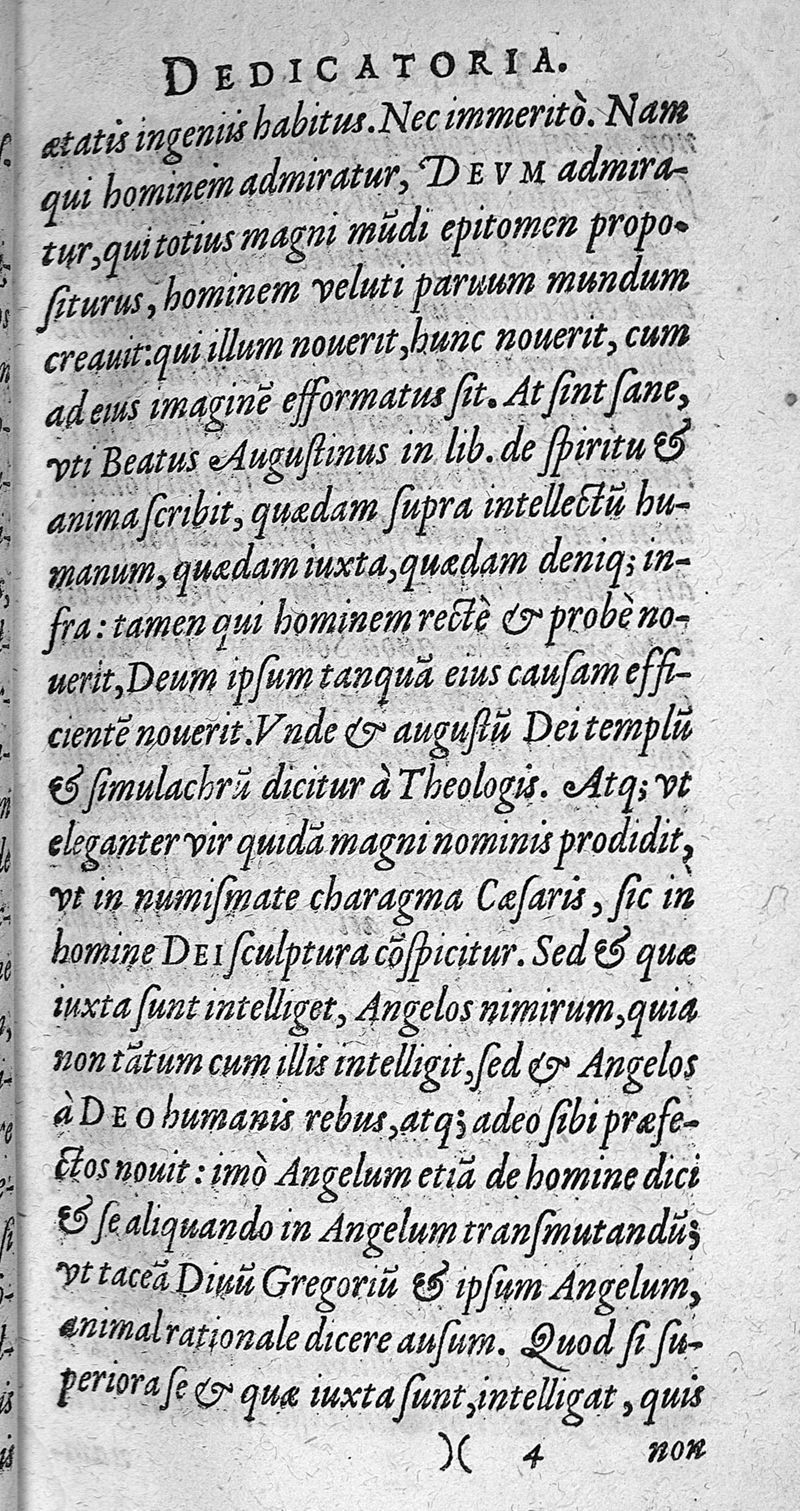 DEDICATORIA.
ætatis ingeniis habitus. Nec immeritò. Nam
qui hominem admiratur, DEVM admira-
tur, qui totius magni mũdi epitomen propo-
ſiturus, hominem veluti paruum mundum
creauit: qui illum nouerit, hunc nouerit, cum
ad eius imaginẽ efformatus ſit. At ſint ſane,
vti Beatus Auguſtinus in lib. de ſpiritu &
anima ſcribit, quædam ſupra intellectũ hu-
manum, quædam iuxta, quædam deniq; in-
fra: tamen qui hominem rectè & probè no-
uerit, Deum ipſum tanquã eius cauſam effi-
cientẽ nouerit. Vnde & auguſtũ Dei templũ
& ſimulachrũ dicitur à Theologis. Atq; vt
eleganter vir quidã magni nominis prodidit,
vt in numiſmate charagma Cæſaris, ſic in
homine DEI ſculptura cõſpicitur. Sed & quæ
iuxta ſunt intelliget, Angelos nimirum, quia
non tãtum cum illis intelligit, ſed & Angelos
à DEO humanis rebus, atq; adeo ſibi præfe-
ctos nouit: imò Angelum etiã de homine dici
& ſe aliquando in Angelum transmutandũ;
vt taceã Diuũ Gregoriũ & ipſum Angelum,
animal rationale dicere auſum. Quod ſi ſu-
periora ſe & quæ iuxta ſunt, intelligat, quis
)( 4 non